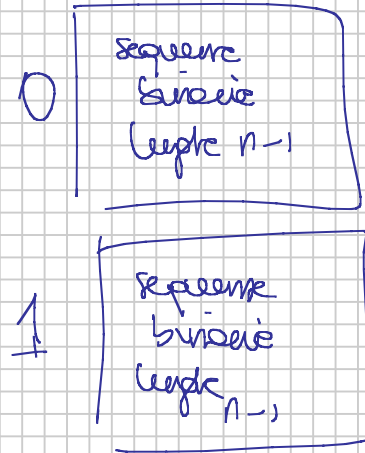 0
sequenze
binarie
lunghe n-1
1
sequenze
binarie
lunghe
n-1